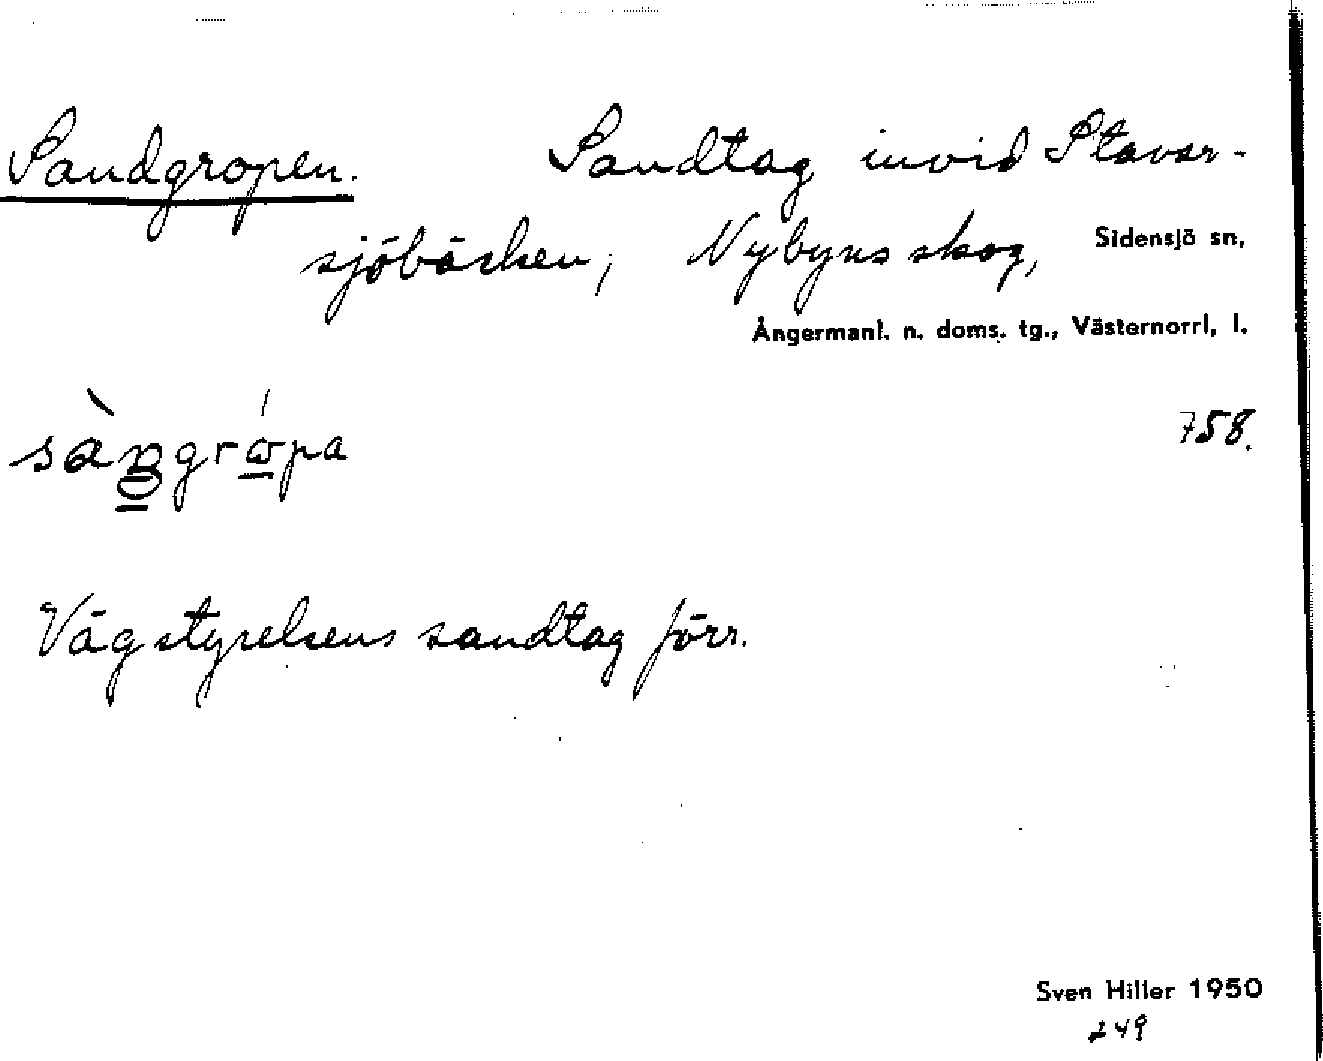 Sandgropen. Sandtag invid Stavar-
sjöbäcken, Nybyns skog, Sidensjö sn,
Ångermanl. n. doms. tg., Västernorrl, l.
758.
Vägstyrelsens sandtag förr.
Sven Hiller 1950
249